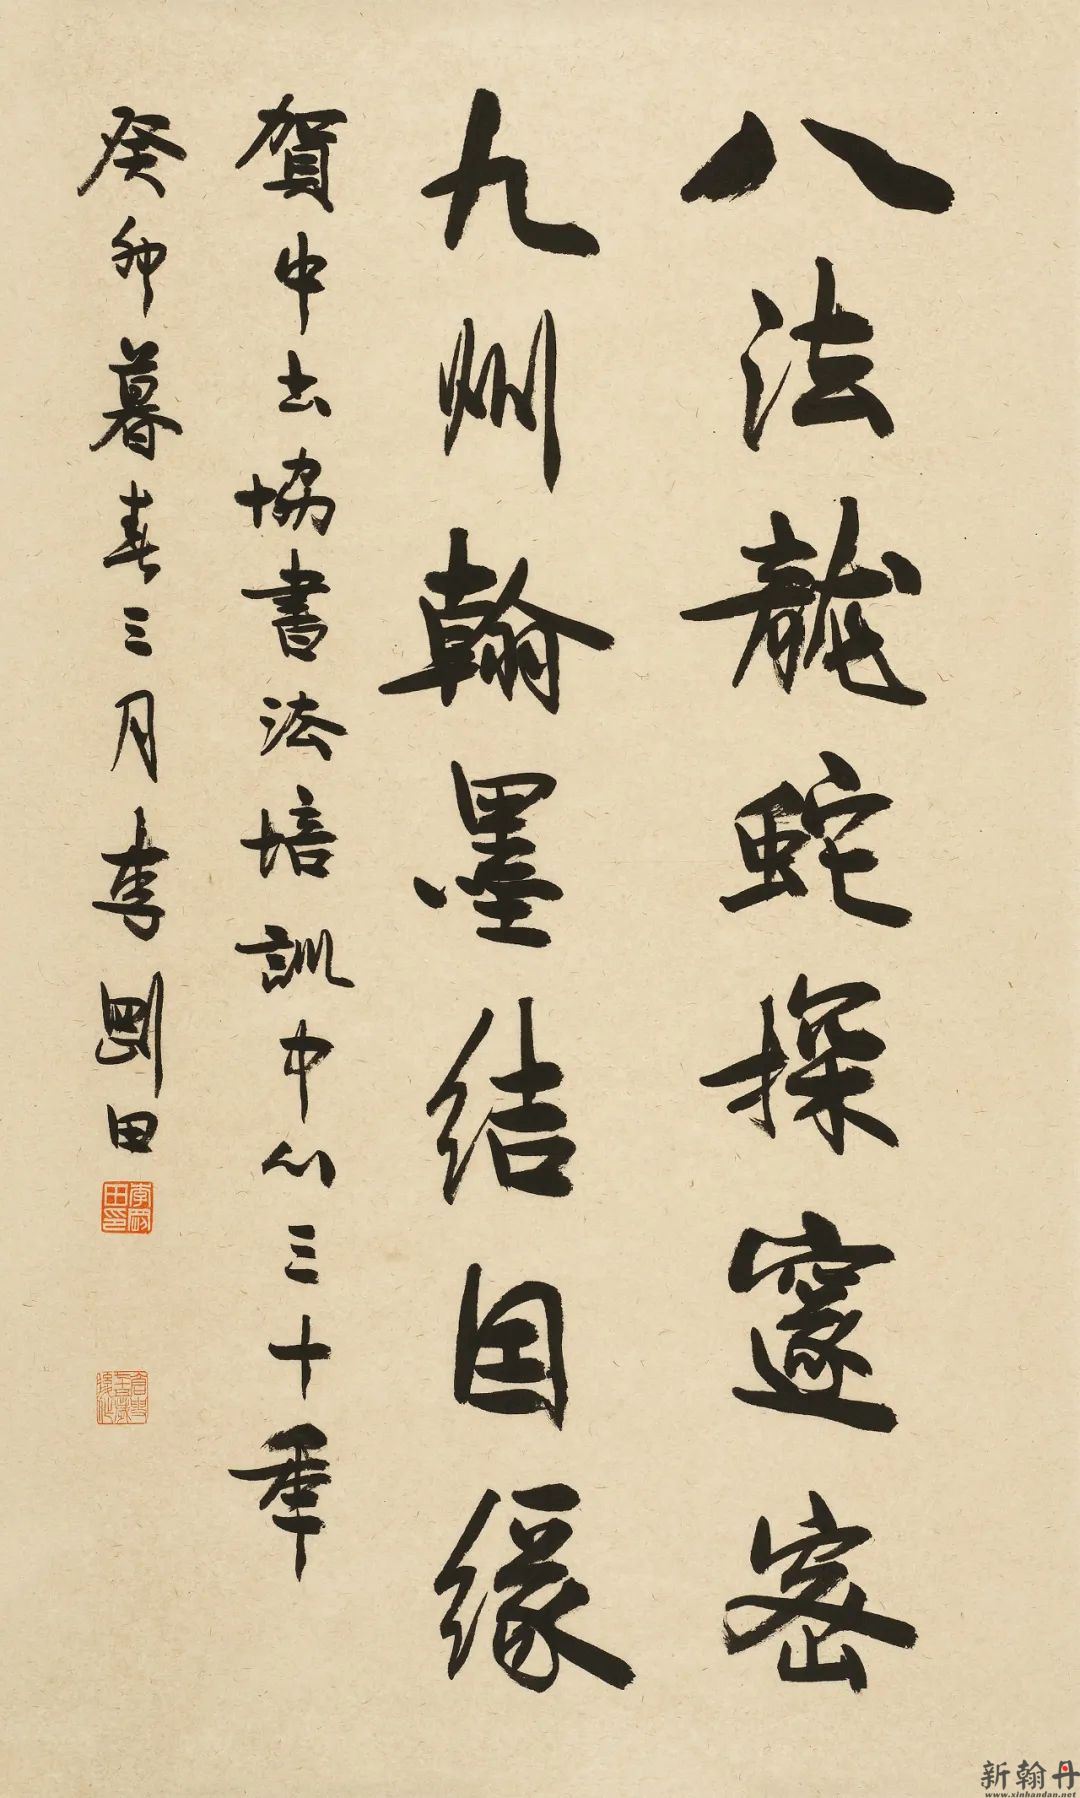 八法龍蛇探邃密
九州翰墨結因緣
賀中书協書法培訓中心三十年
癸卯暮春三月李剛田
李剛田印
新翰丹
www.xinhandan.net